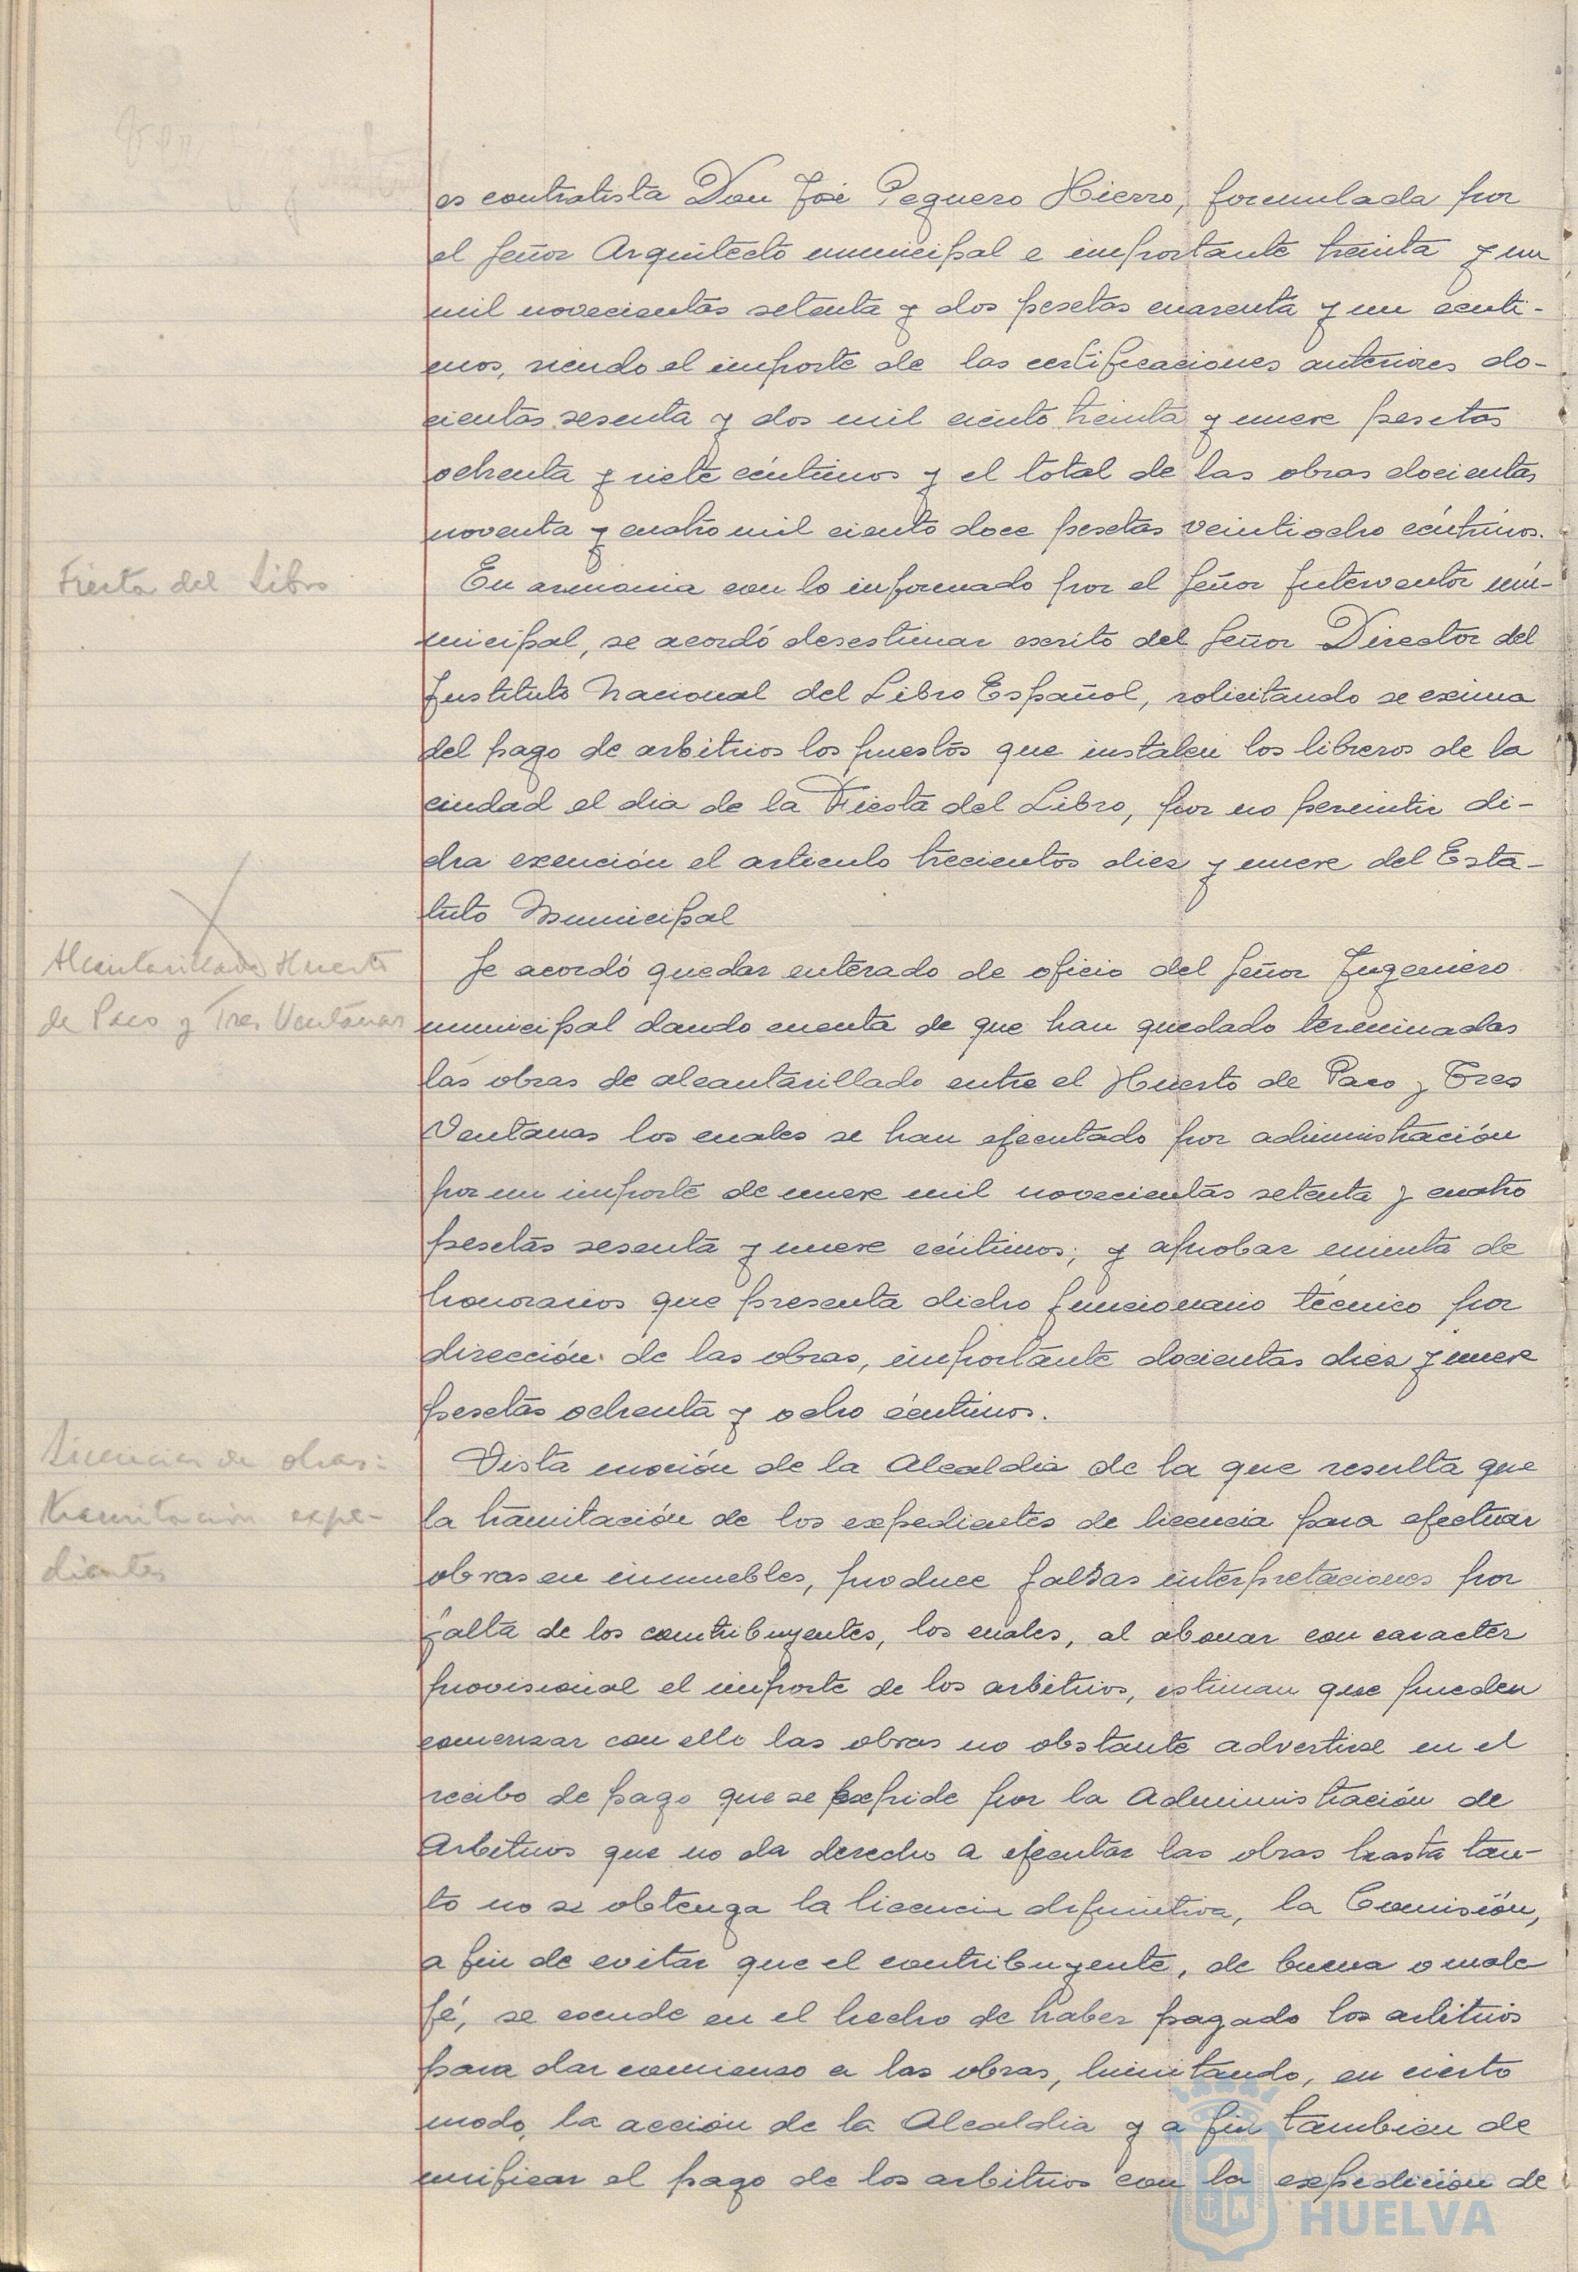 es contratista Don José Peguero Hierro, formulada por
el Señor Arquitecto municipal e importante treinta y un
mil novecientas setenta y dos pesetas cuarenta y un centi-
mos, siendo el importe de las certificaciones anteriores do-
cientas sesenta y dos mil ciento treinta y nueve pesetas
ochenta y siete céntimos y el total de las obras docientas
noventa y cuatro mil ciento doce pesetas veintiocho céntimos.
Fiesta del Libro
En armonia con lo informado por el Señor Interventor mu-
nicipal, se acordó desestimar escrito del Señor Director del
Instituto Nacional del Libro Español, solicitando se exima
del pago de arbitrios los puestos que instalen los libreros de la
ciudad el dia de la Fiesta del Libro, por no permitir di-
cha exención el articulo trecientos diez y nueve del Esta-
tuto Municipal
Alcantarillado Huerto
de Paco y Tres Ventanas
Se acordó quedar enterado de oficio del Señor Ingeniero
municipal dando cuenta de que han quedado terminadas
las obras de alcantarillado entre el Huerto de Paco y Tres
Ventanas los cuales se han ejecutado por administración
por un importe de nueve mil novecientas setenta y cuatro
pesetas sesenta y nueve céntimos; y aprobar minuta de
honorarios que presenta dicho funcionario técnico por
dirección de las obras, importante docientas diez y nueve
pesetas ochenta y ocho céntimos.
Licencias de obras:
tramitación expe-
dientes
Vista moción de la Alcaldia de la que resulta que
la tramitación de los expedientes de licencia para efectuar
obras en inmuebles, produce falsas interpretaciones por
falta de los contribuyentes, los cuales, al abonar con caracter
provisional el importe de los arbitrios, estiman que pueden
comenzar con ello las obras no obstante advertirse en el
recibo de pago que se expide por la Administración de
Arbitrios que no da derecho a ejecutar las obras hasta tan-
to no se obtenga la licencia definitiva, la Comisión,
a fin de evitar que el contribuyente, de buena o mala
fé, se escude en el hecho de haber pagado los arbitrios
para dar comienzo a las obras, limitando, en cierto
modo, la acción de la Alcaldia y a fin tambien de
unificar el pago de los arbitrios con la expedición de
HUELVA